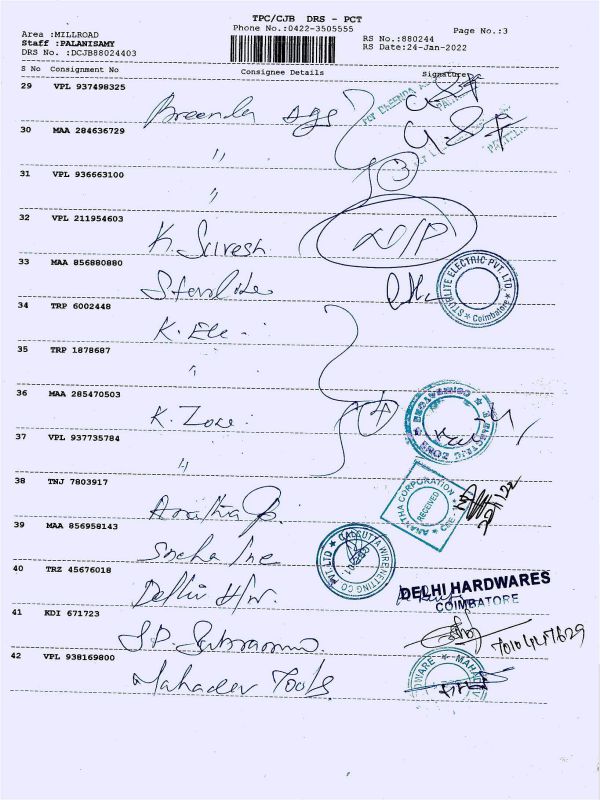 TPC/CJB DRS - PCT
Phone No.:0422-3505555
Page No.:3
Area :MILLROAD
Staff :PALANISAMY
DRS No. :DCJB88024403
RS No.:880244
RS Date:24-Jan-2022
S No Consignment No Consignee Details Signature
29 VPL 937498325
30 MAA 284636729
"
31 VPL 936663100
"
32 VPL 211954603
K. Suresh
33 MAA 856880880
STURLITE ELECTRIC PVT. LTD. Coimbatore
34 TRP 6002448
K. Ele
35 TRP 1878687
"
36 MAA 285470503
K. Zone
4
37 VPL 937735784
"
38 TNJ 7803917
ANANTHA CORPORATION RECEIVED CBE
39 MAA 856958143
Sneha Ine
CALCUTTA WIRENETTING CO PVT. LTD
40 TRZ 45676018
Delhi H/w.
DELHI HARDWARES
COIMBATORE
41 KDI 671723
42 VPL 938169800
Mahadev Tools